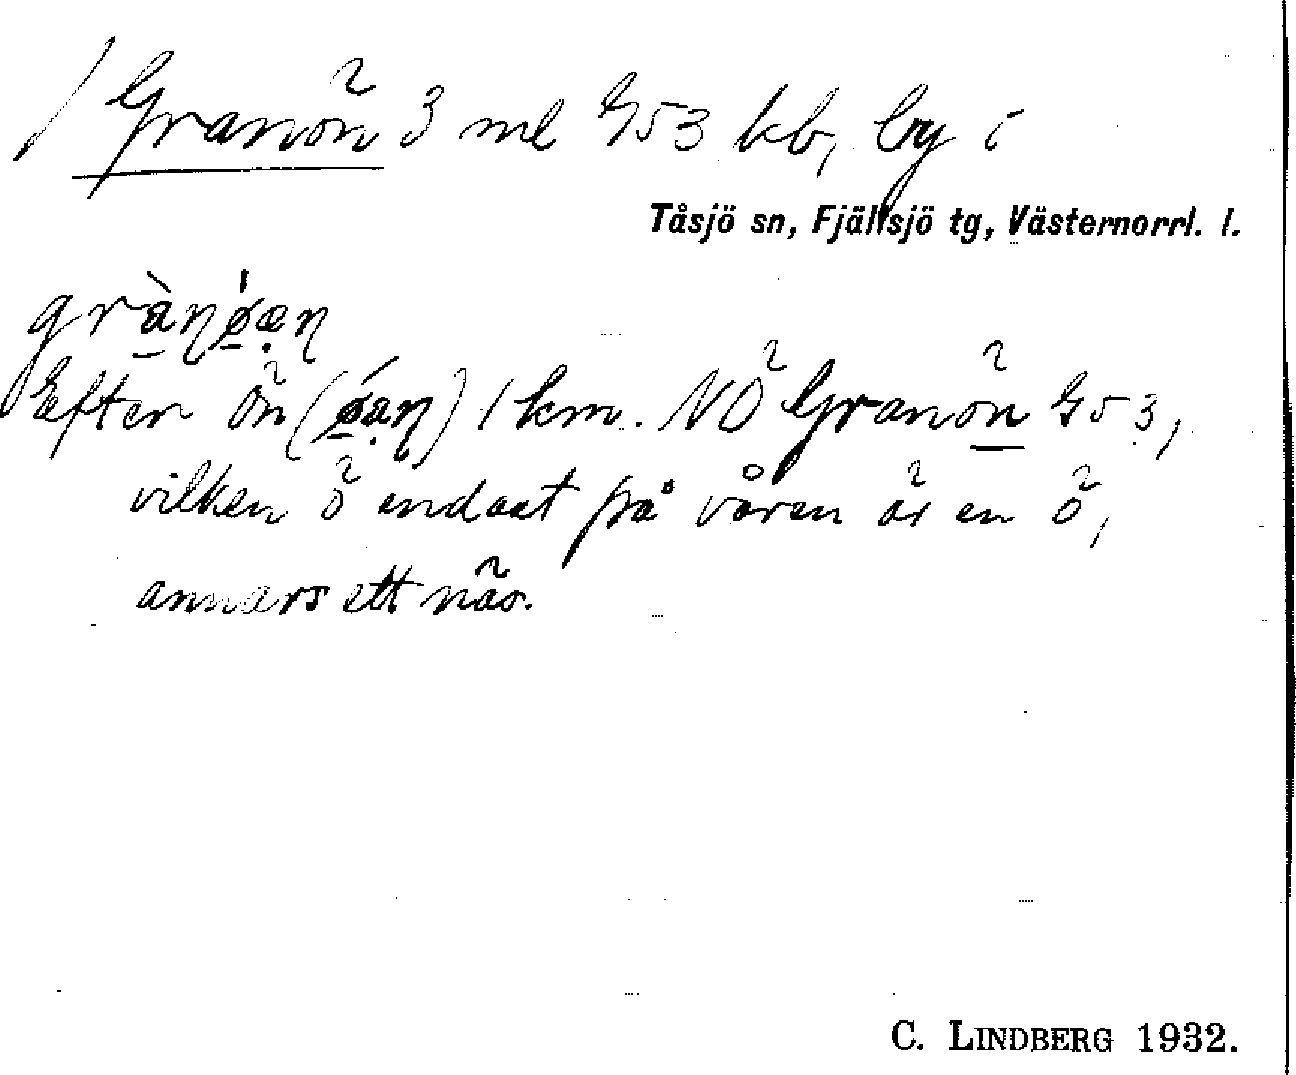 / Granön 3 ml G53 kb, by i
Tåsjö sn, Fjällsjö tg, Västernorrl. l.
Efter Ön ( ) 1 km. NÖ Granön G53,
vilken ö endast på våren är en ö,
annars ett näs.
C. LINDBERG 1932.